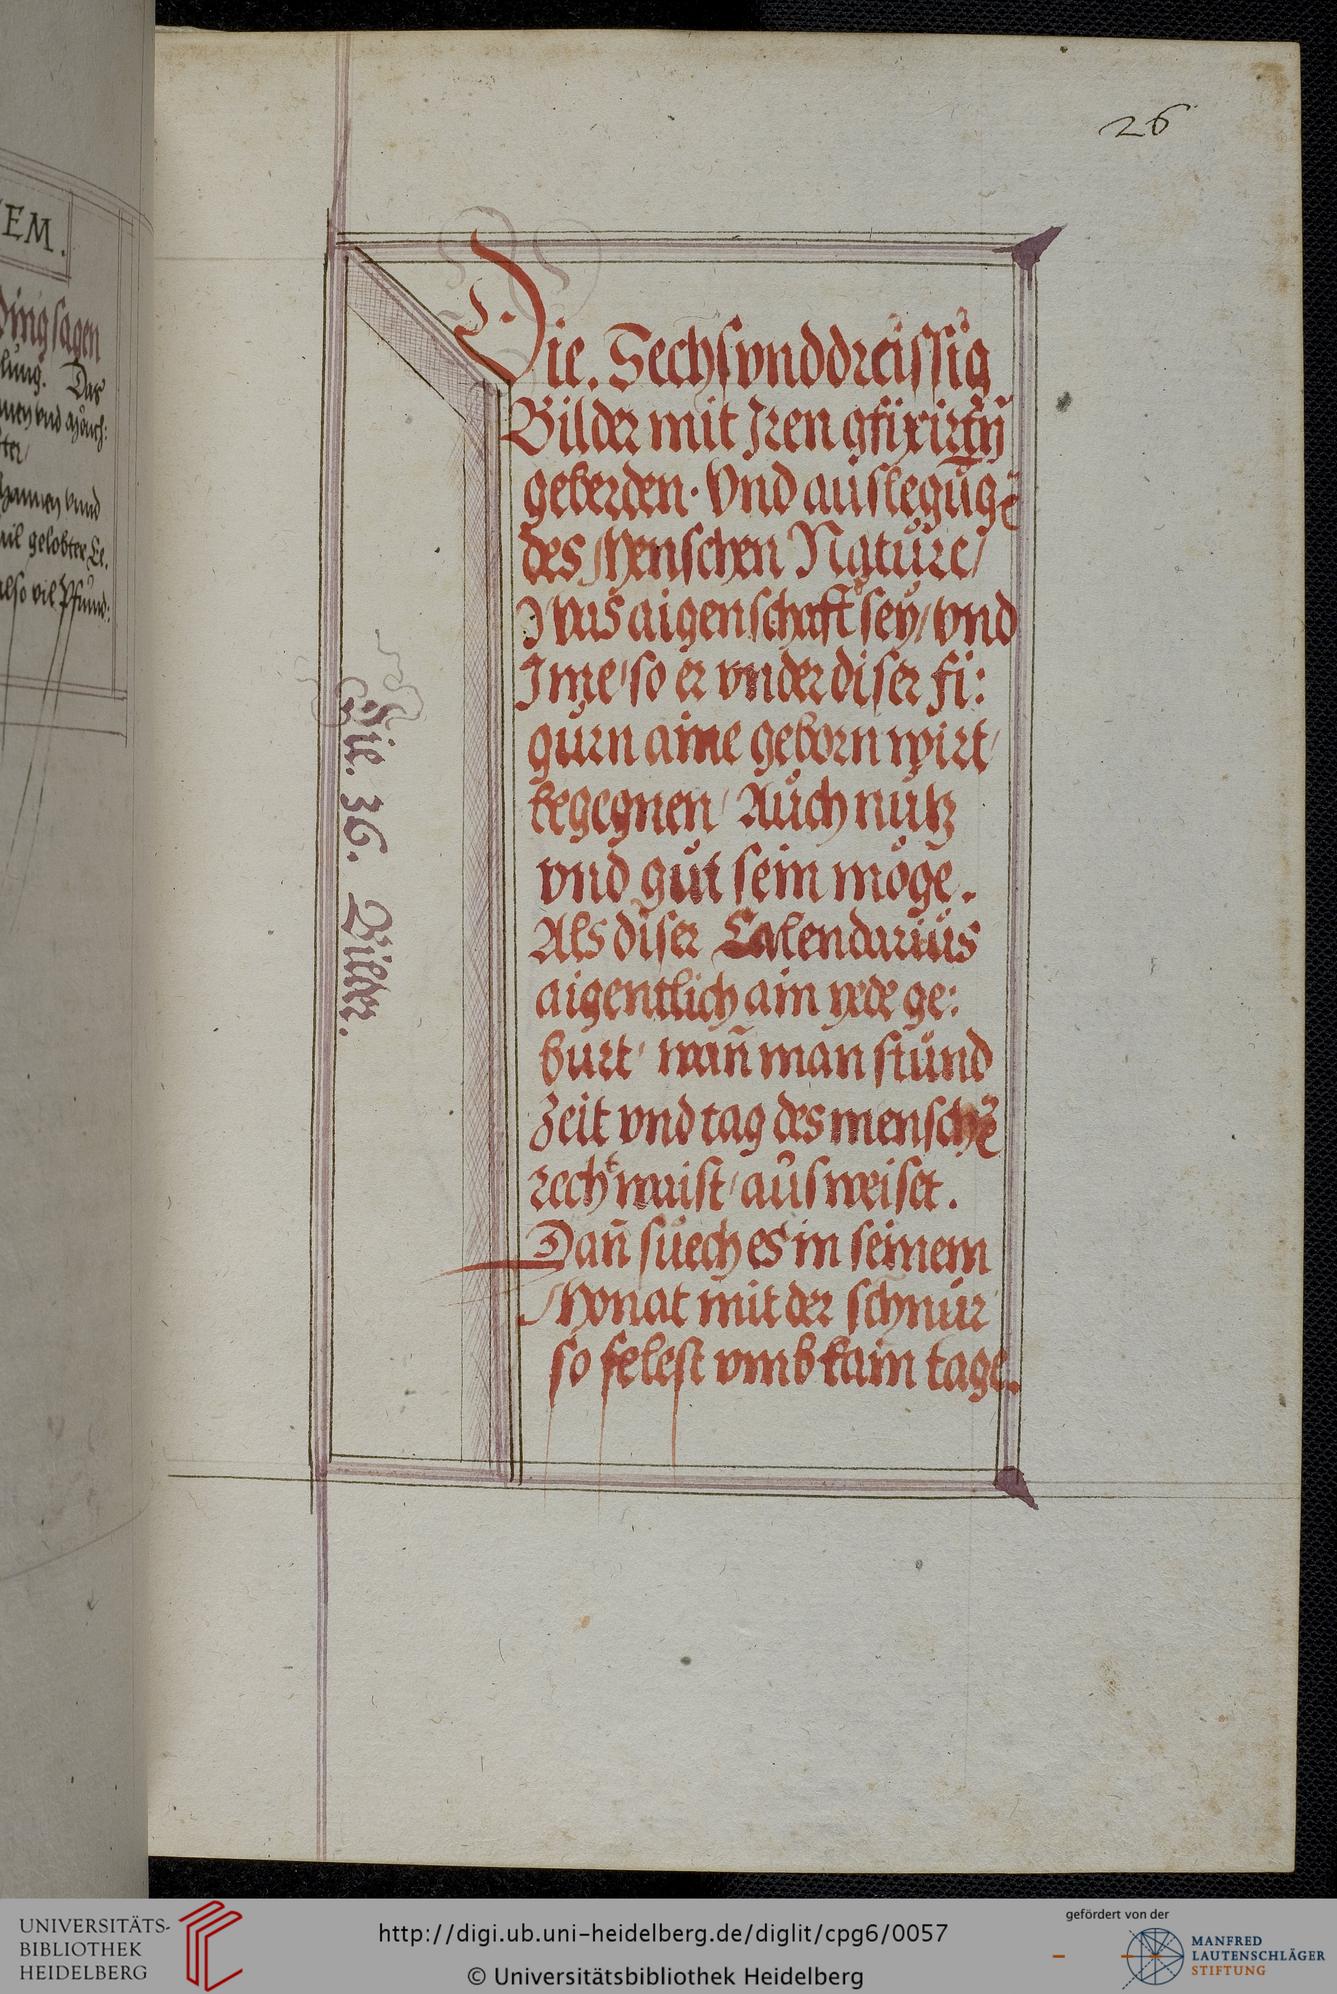 26
EM.
Ding sagen
lung. Das
vil gelobter
also vil Pfund:
Die. Sechsvnddreissig
Bilder mit Iren gfixirtn̄
geberden. Vnd auslegūg
des Menschen Natůre/
Was aigenschafft sey/ vnd
Ime/ so er vnder diser fi:
gůrn aine geborn wirt/
begegnen/ Aůch nůtz
vnd gůt sein möge.
Als diser Calendariůs
aigentlich ain yede ge:
burt/ wañ man stůnd
Zeit vnd tag des mensch
recht waist/ aůsweiset.
Dañ sůech es in seinem
Monat mit der schnůr
so felest vmb kain tage.
Die. 36. Bilder.
UNIVERSITÄTS-
BIBLIOTHEK
HEIDELBERG
http://digi.ub.uni-heidelberg.de/diglit/cpg6/0057
© Universitätsbibliothek Heidelberg
gefördert von der
MANFRED
LAUTENSCHLÄGER
STIFTUNG